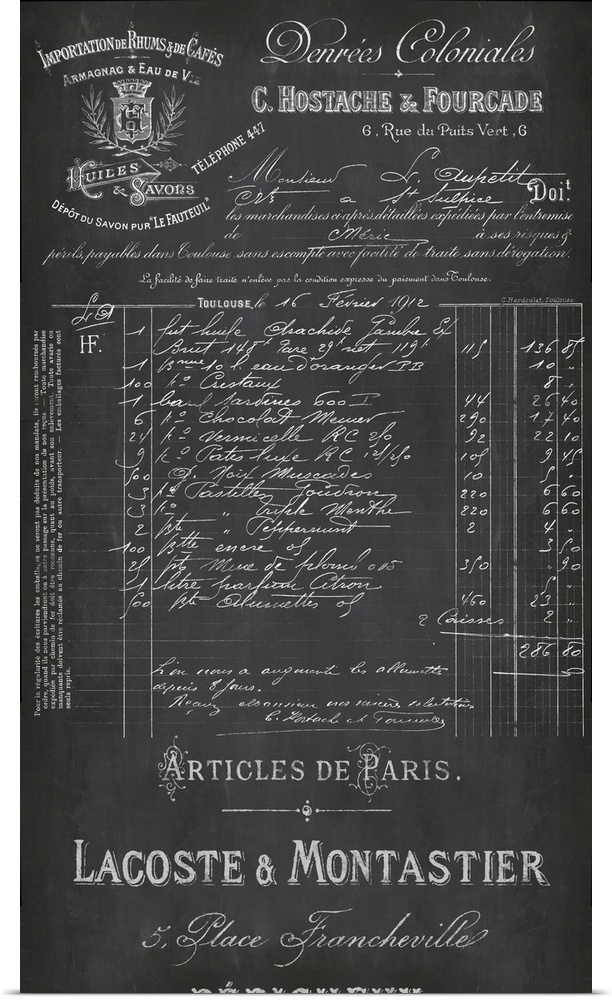 IMPORTATION DE RHUMS & DE CAFÉS
ARMAGNAC & EAU DE VIE
HUILES
& SAVONS
DÉPÔT DU SAVON PUR "LE FAUTEUIL"
TÉLÉPHONE 447
Denrées Coloniales
C. HOSTACHE & FOURCADE
6, Rue du Puits Vert, 6
Monsieur L. Aupetit
à St Sulpice Doit
les marchandises ci-après détaillées expédiées par l'entremise
de Méric à ses risques &
périls, payables dans Toulouse sans escompte avec facilité de traite sans dérogation.
La facilité de faire traite n'enlève pas la condition expresse du paiement dans Toulouse.
TOULOUSE, le 16 Février 1912
C. Berdoulat, Toulouse
HF.
1 fut huile Arachide
Brut 148k Tare 29k net, 119k 115 136 85
1 10 l. eau d'oranger 10 "
100 Cristaux 8 "
1 Sardines 600 44 26 40
6 Chocolat Menier 290 17 40
24 Vermicelle RC 92 22 10
9 Pates luxe RC 105 9 45
500 Noix Muscades 10 5 "
3 Pastilles Goudron 220 6 60
3 " triple Menthe 220 6 60
2 " Peppermint 2 4 "
100 encre 3 50
25 Mine de plomb 350 " 90
1 litre parfum Citron 5 "
500 Alumettes 460 23 "
2 Caisses
286 80
L'on nous a augmenté les allumettes
depuis 8 jours.
C. Hostache et Fourcade
Pour la régularité des écritures les emballages ne seront pas déduits de nos mandats, ils seront remboursés par
ordre, quand ils nous parviendront ou à notre passage sur la présentation de nos reçus. — Toute marchandise
expédiée par chemin de fer doit être reconnue, quant au poids, avant son enlèvement. Toute avarie ou
manquants doivent être réclamés au chemin de fer ou autre transporteur. — Les emballages facturés sont
seuls repris.
ARTICLES DE PARIS.
LACOSTE & MONTASTIER
5, Place Francheville